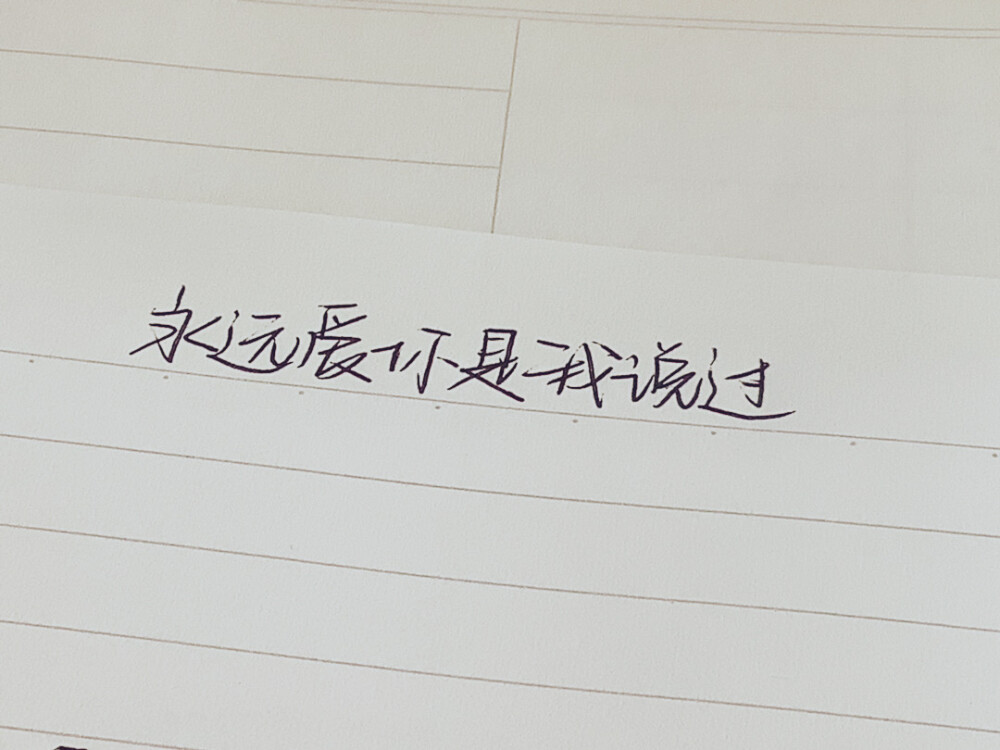 永远爱你是我说过